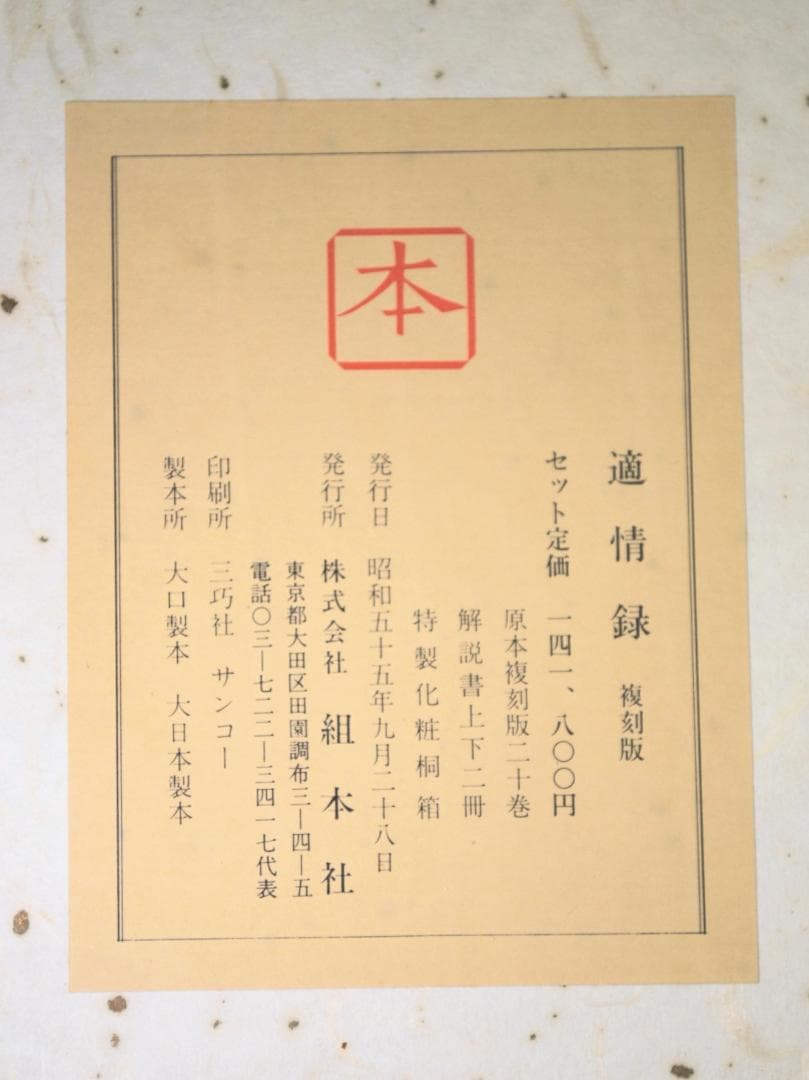 本
適情録 複刻版
セット定価 一四一、八〇〇円
原本複刻版二十巻
解説書上下二冊
特製化粧桐箱
発行日 昭和五十五年九月二十八日
発行所 株式会社 組本社
東京都大田区田園調布三―四―五
電話〇三―七二二―三四一七代表
印刷所 三巧社 サンコー
製本所 大口製本 大日本製本